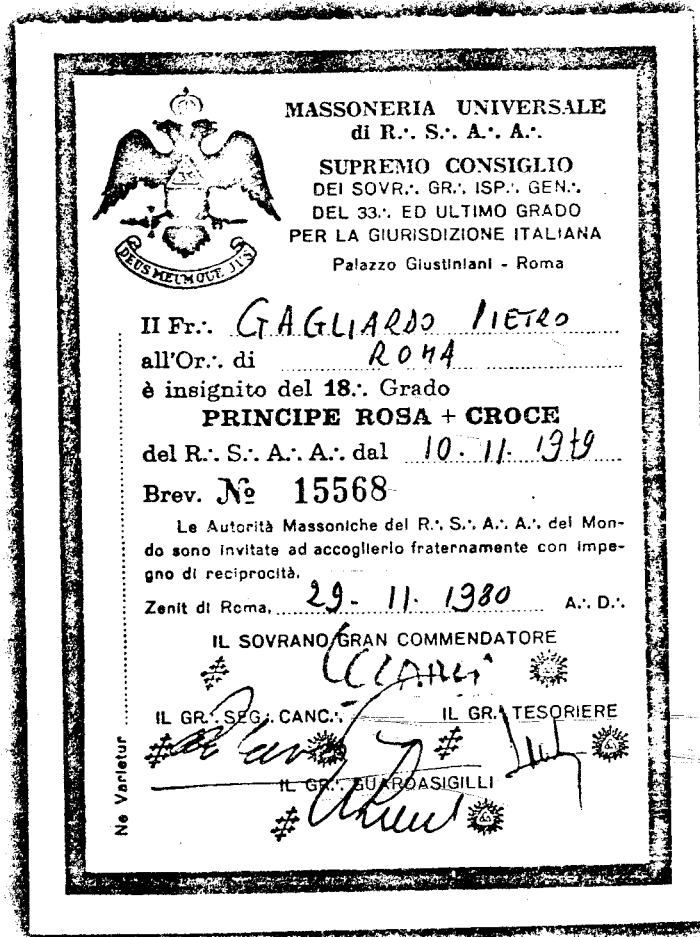 MASSONERIA UNIVERSALE
di R.·. S.·. A.·. A.·.
SUPREMO CONSIGLIO
DEI SOVR.·. GR.·. ISP.·. GEN.·.
DEL 33.·. ED ULTIMO GRADO
PER LA GIURISDIZIONE ITALIANA
Palazzo Giustiniani - Roma
DEUS MEUMQUE JUS
Il Fr.·. GAGLIARDO PIETRO
all'Or.·. di ROMA
è insignito del 18.·. Grado
PRINCIPE ROSA + CROCE
del R.·. S.·. A.·. A.·. dal 10-11-1979
Brev. No 15568
Le Autorità Massoniche del R.·. S.·. A.·. A.·. del Mon-
do sono invitate ad accoglierlo fraternamente con impe-
gno di reciprocità.
Zenit di Roma, 29-11-1980 A.·. D.·.
IL SOVRANO GRAN COMMENDATORE
IL GR.·. SEG.·. CANC.·. IL GR.·. TESORIERE
IL GR.·. GUARDASIGILLI
Ne Varietur